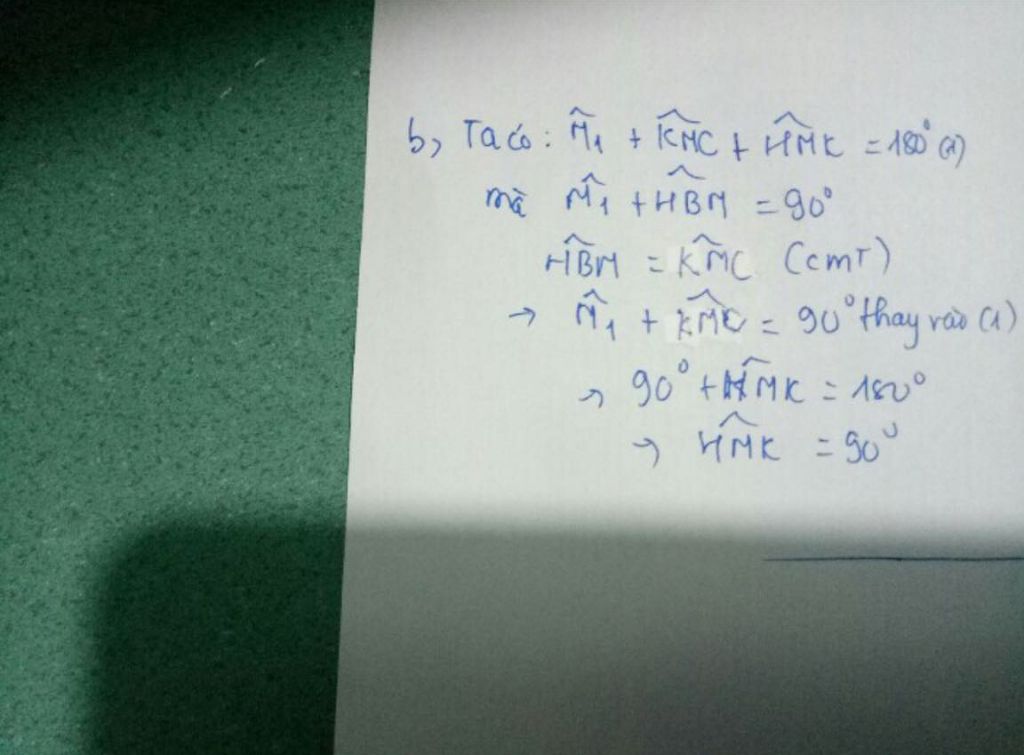 b, Ta có: M̂₁ + K̂MC + ĤMK = 180° (1)
mà M̂₁ + ĤBM = 90°
ĤBM = K̂MC (cmT)
→ M̂₁ + K̂MC = 90° thay vào (1)
→ 90° + ĤMK = 180°
→ ĤMK = 90°